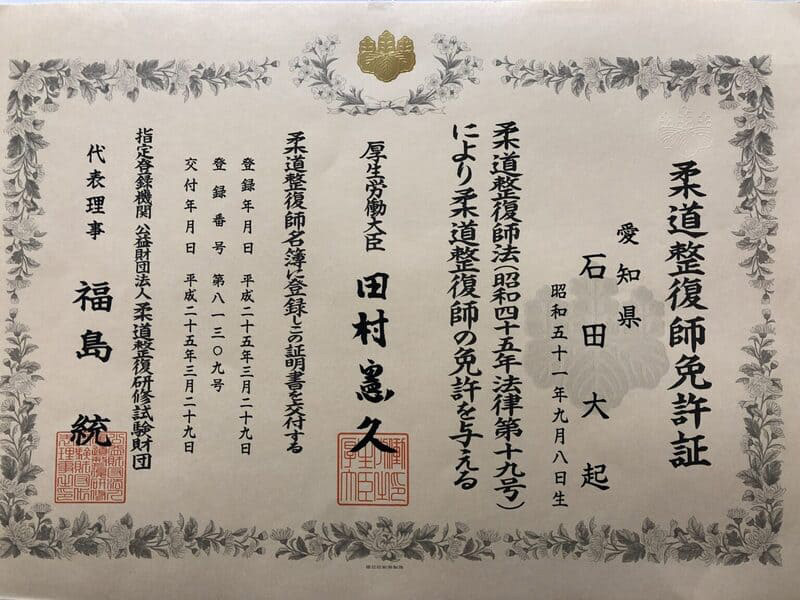 柔道整復師免許証
愛知県
石田大起
昭和五十一年九月八日生
柔道整復師法(昭和四十五年法律第十九号)
により柔道整復師の免許を与える
厚生労働大臣 田村憲久
柔道整復師名簿に登録しこの証明書を交付する
登録年月日 平成二十五年三月二十九日
登録番号 第八一三〇九号
交付年月日 平成二十五年三月二十九日
指定登録機関 公益財団法人柔道整復研修試験財団
代表理事 福島統